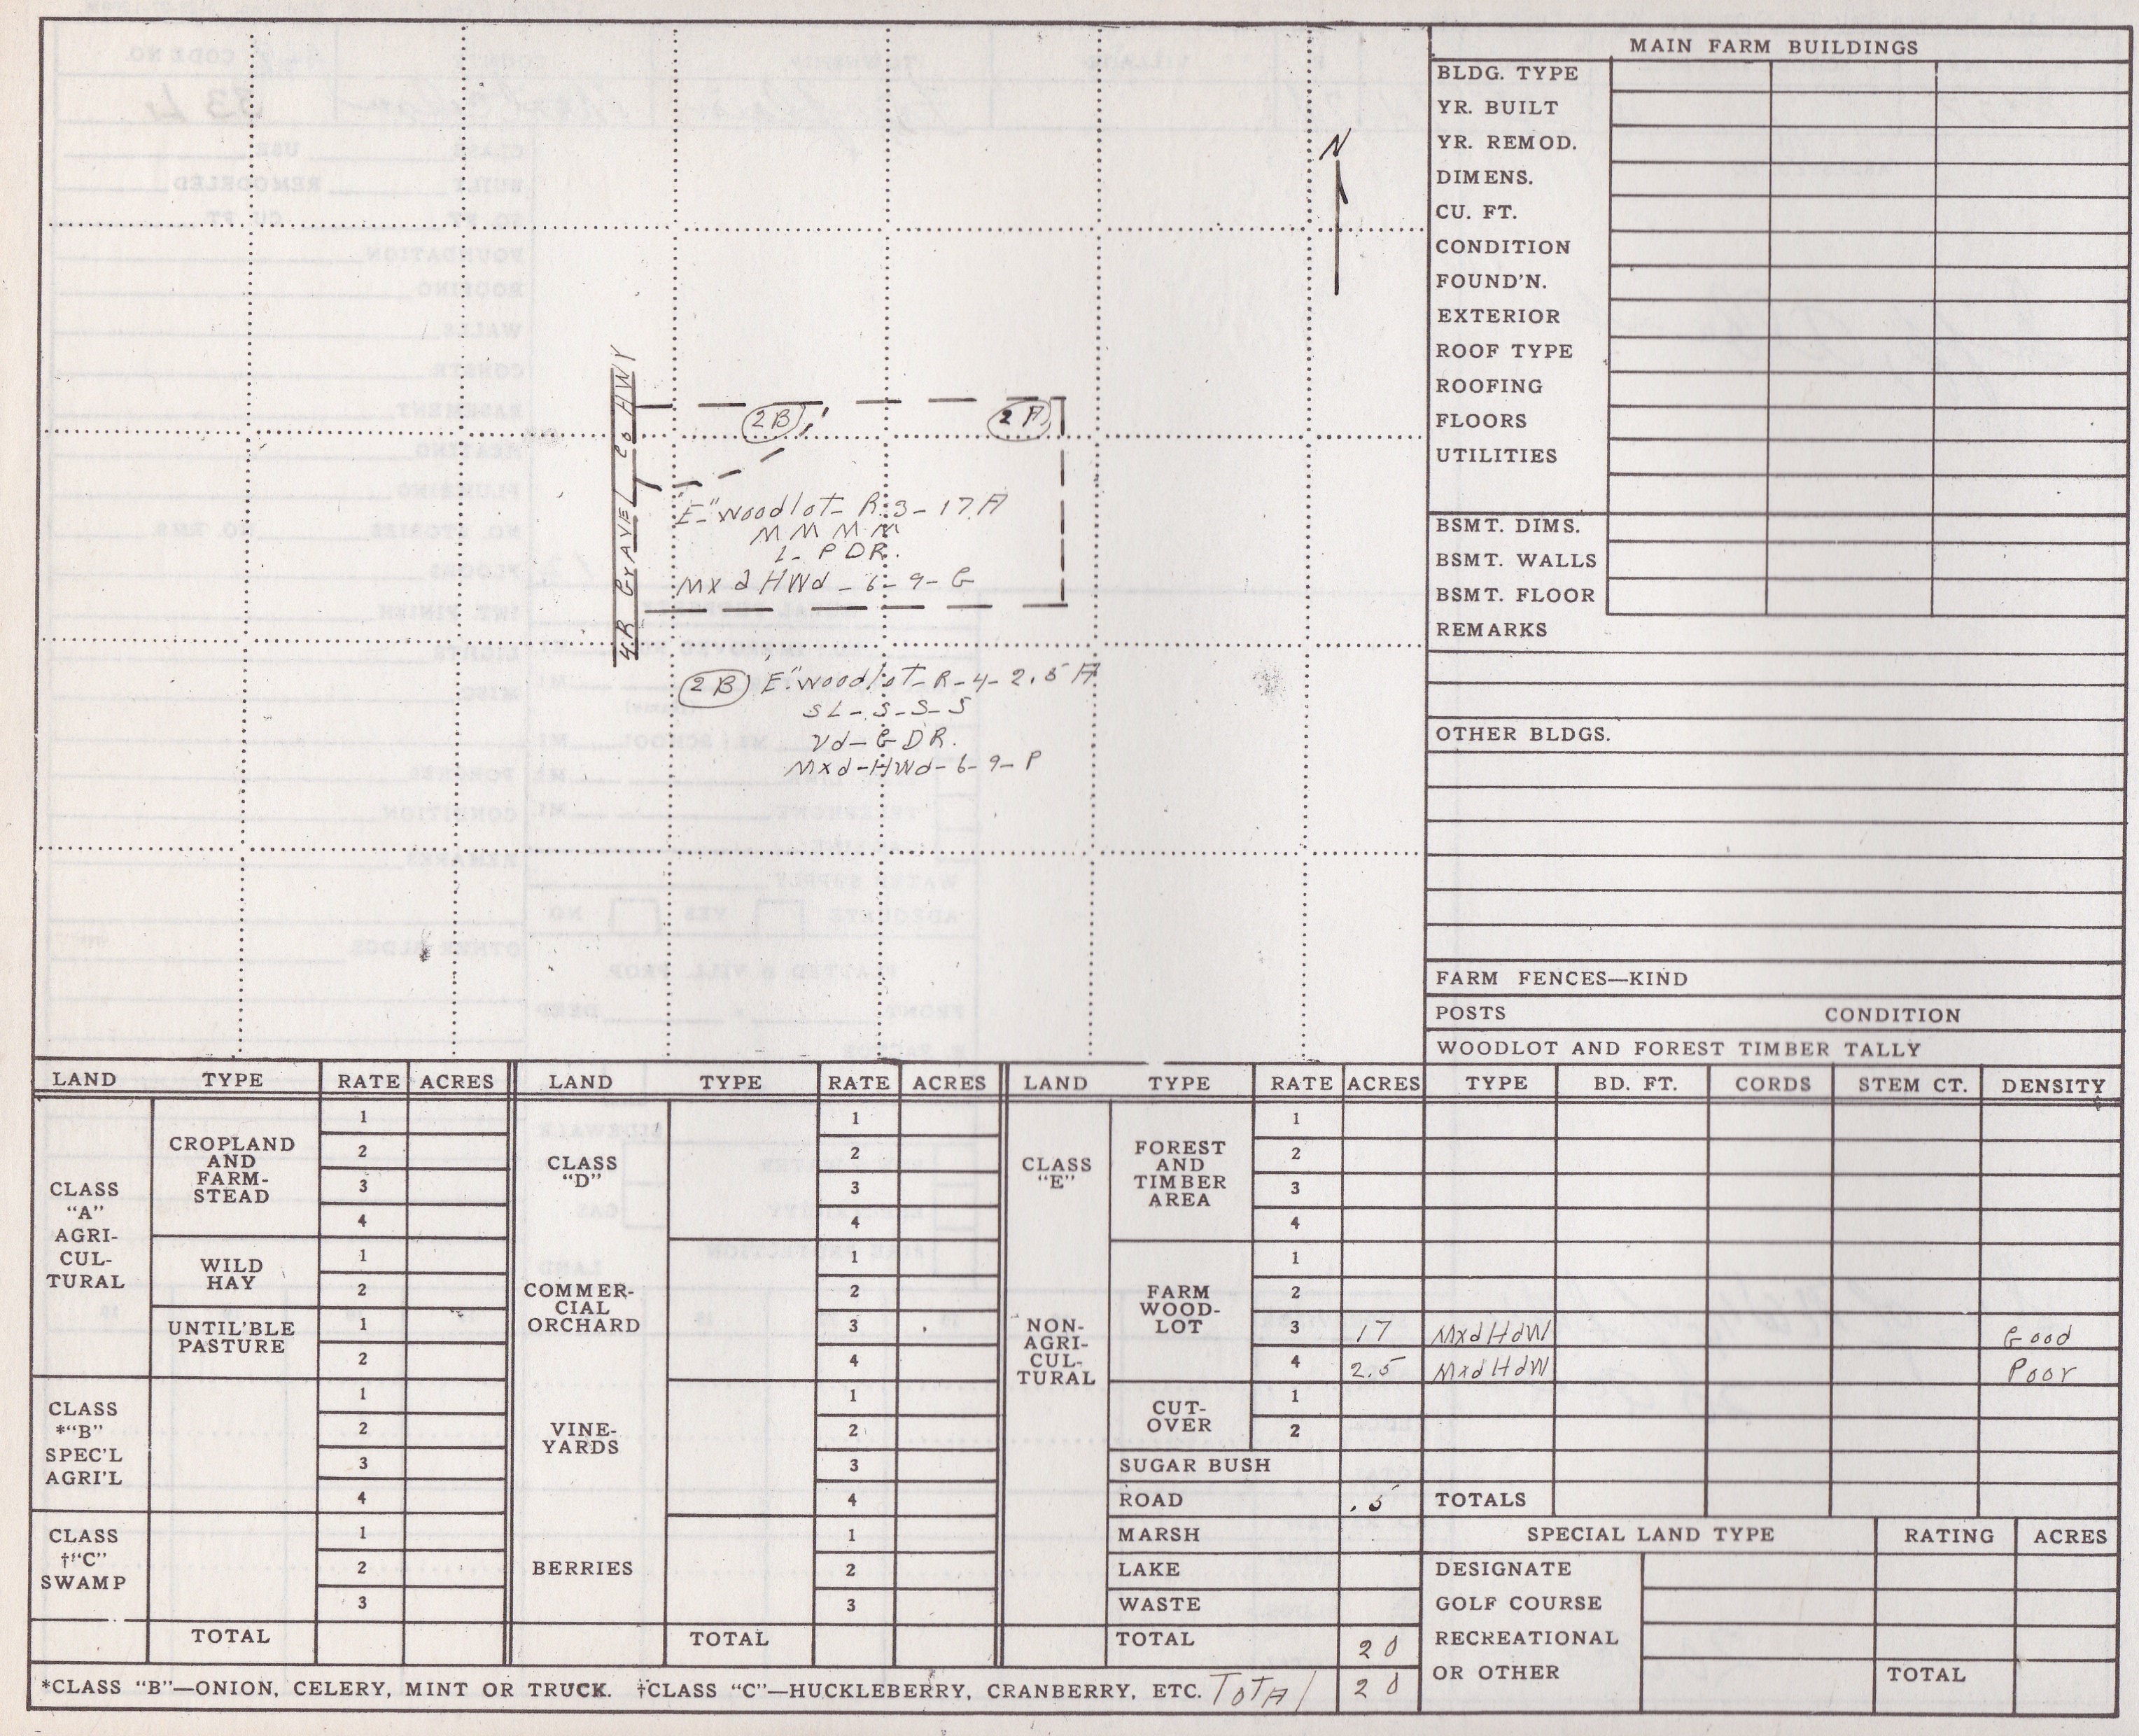 MAIN FARM BUILDINGS
BLDG. TYPE
YR. BUILT
YR. REMOD.
DIMENS.
CU. FT.
CONDITION
FOUND'N.
EXTERIOR
ROOF TYPE
ROOFING
FLOORS
UTILITIES
BSMT. DIMS.
BSMT. WALLS
BSMT. FLOOR
REMARKS
OTHER BLDGS.
FARM FENCES—KIND
POSTS CONDITION
WOODLOT AND FOREST TIMBER TALLY
N
4R GrAVEL Co HWY
2B 2A
"E" woodlot - R-3 - 17 A
M M M M
2 - P DR.
Mxd HWd - 6 - 9 - G
2B "E" woodlot - R - 4 - 2.5 A
SL - S - S - S
Vd - G DR.
Mxd - HWd - 6 - 9 - P
LAND TYPE RATE ACRES LAND TYPE RATE ACRES LAND TYPE RATE ACRES TYPE BD. FT. CORDS STEM CT. DENSITY
CLASS "A" AGRI-CUL-TURAL
CROPLAND AND FARM-STEAD
1
2
3
4
WILD HAY
1
2
UNTIL'BLE PASTURE
1
2
CLASS *"B" SPEC'L AGRI'L
1
2
3
4
CLASS †"C" SWAMP
1
2
3
TOTAL
CLASS "D"
1
2
3
4
COMMER-CIAL ORCHARD
1
2
3
4
VINE-YARDS
1
2
3
4
BERRIES
1
2
3
TOTAL
CLASS "E"
NON-AGRI-CUL-TURAL
FOREST AND TIMBER AREA
1
2
3
4
FARM WOOD-LOT
1
2
3 17 MxdHdW Good
4 2.5 MxdHdW Poor
CUT-OVER
1
2
SUGAR BUSH
ROAD .5 TOTALS
MARSH
LAKE
WASTE
TOTAL 20
SPECIAL LAND TYPE RATING ACRES
DESIGNATE
GOLF COURSE
RECREATIONAL
OR OTHER TOTAL
*CLASS "B"—ONION, CELERY, MINT OR TRUCK. †CLASS "C"—HUCKLEBERRY, CRANBERRY, ETC. TotAl 20